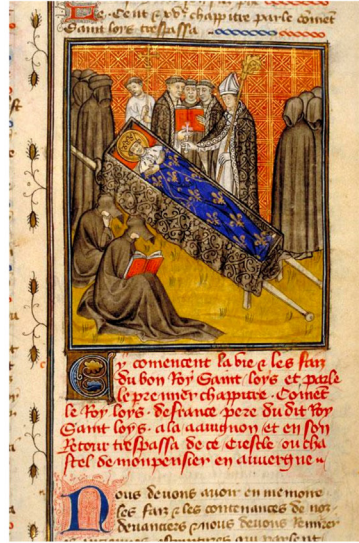 Le Cent & xve chappitre parle comēt
saint loys trespassa
Cy comencent la vie & les fais
du bon Roy Saint loys et parle
le premier chappitre. Comēt
le Roy loys. de france pere du dit Roy
Saint loys. ala auignon et en son
Retour trespassa de ce siecle ou cha
stel de monpensier en aluuergne
Nous deuons auoir en memoire
les fais & les contenances de nos
deuanciers & nous deuons Remirer